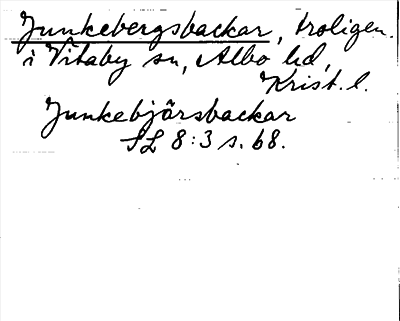 Junkebergsbackar, troligen.
i Vitaby sn, Albo hd,
Krist. l.
Junkebjårsbackar
SL 8:3 s. 68.